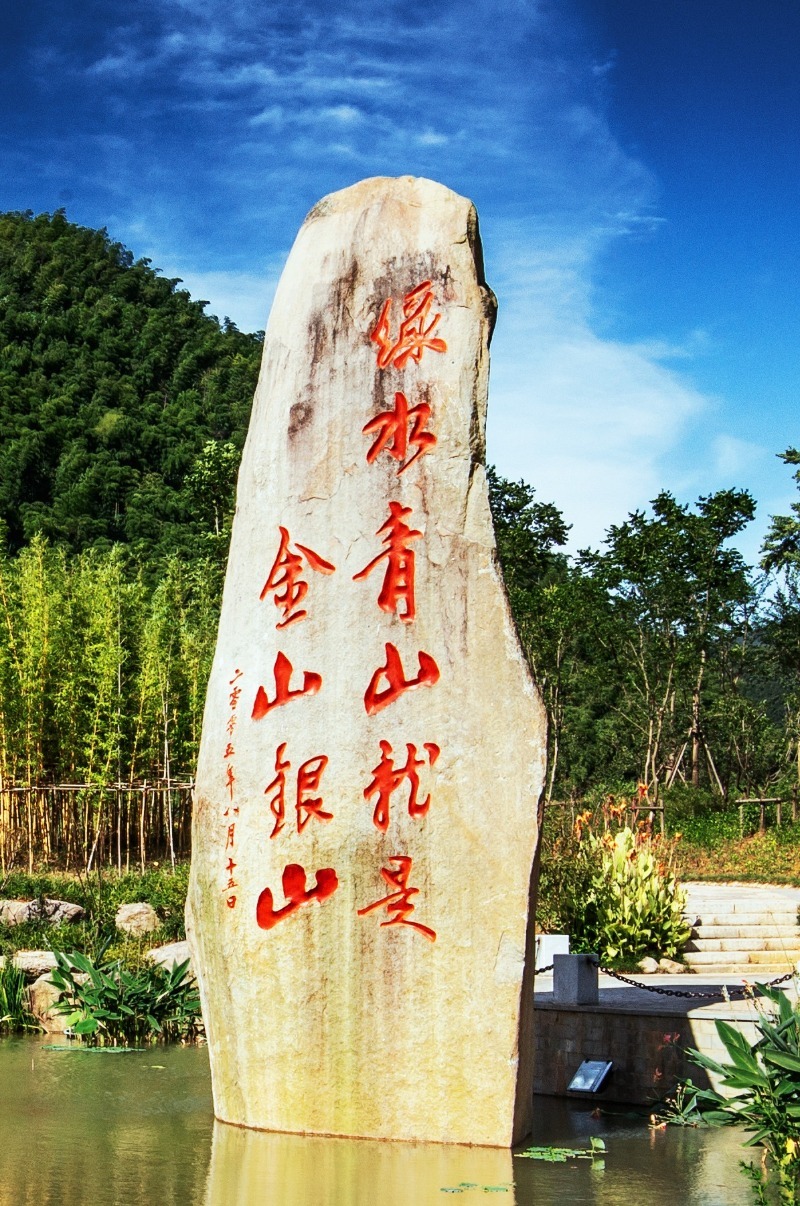 綠水青山就是
金山銀山
二零零五年八月十五日